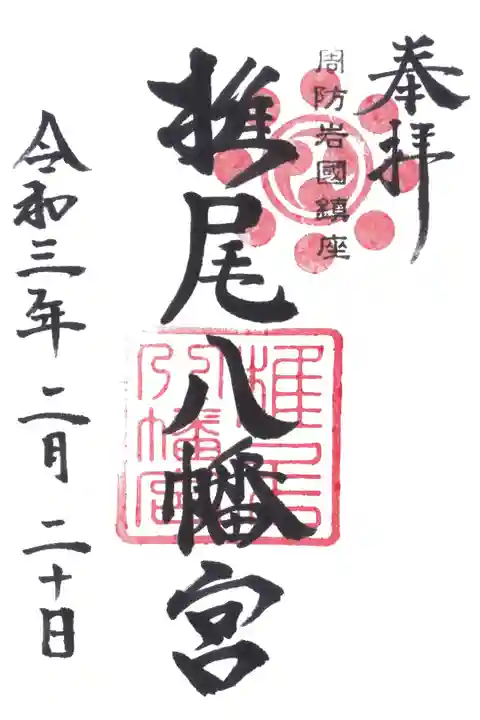 奉拝
周防岩國鎮座
椎尾八幡宮
椎尾八幡宮
令和三年 二月 二十日